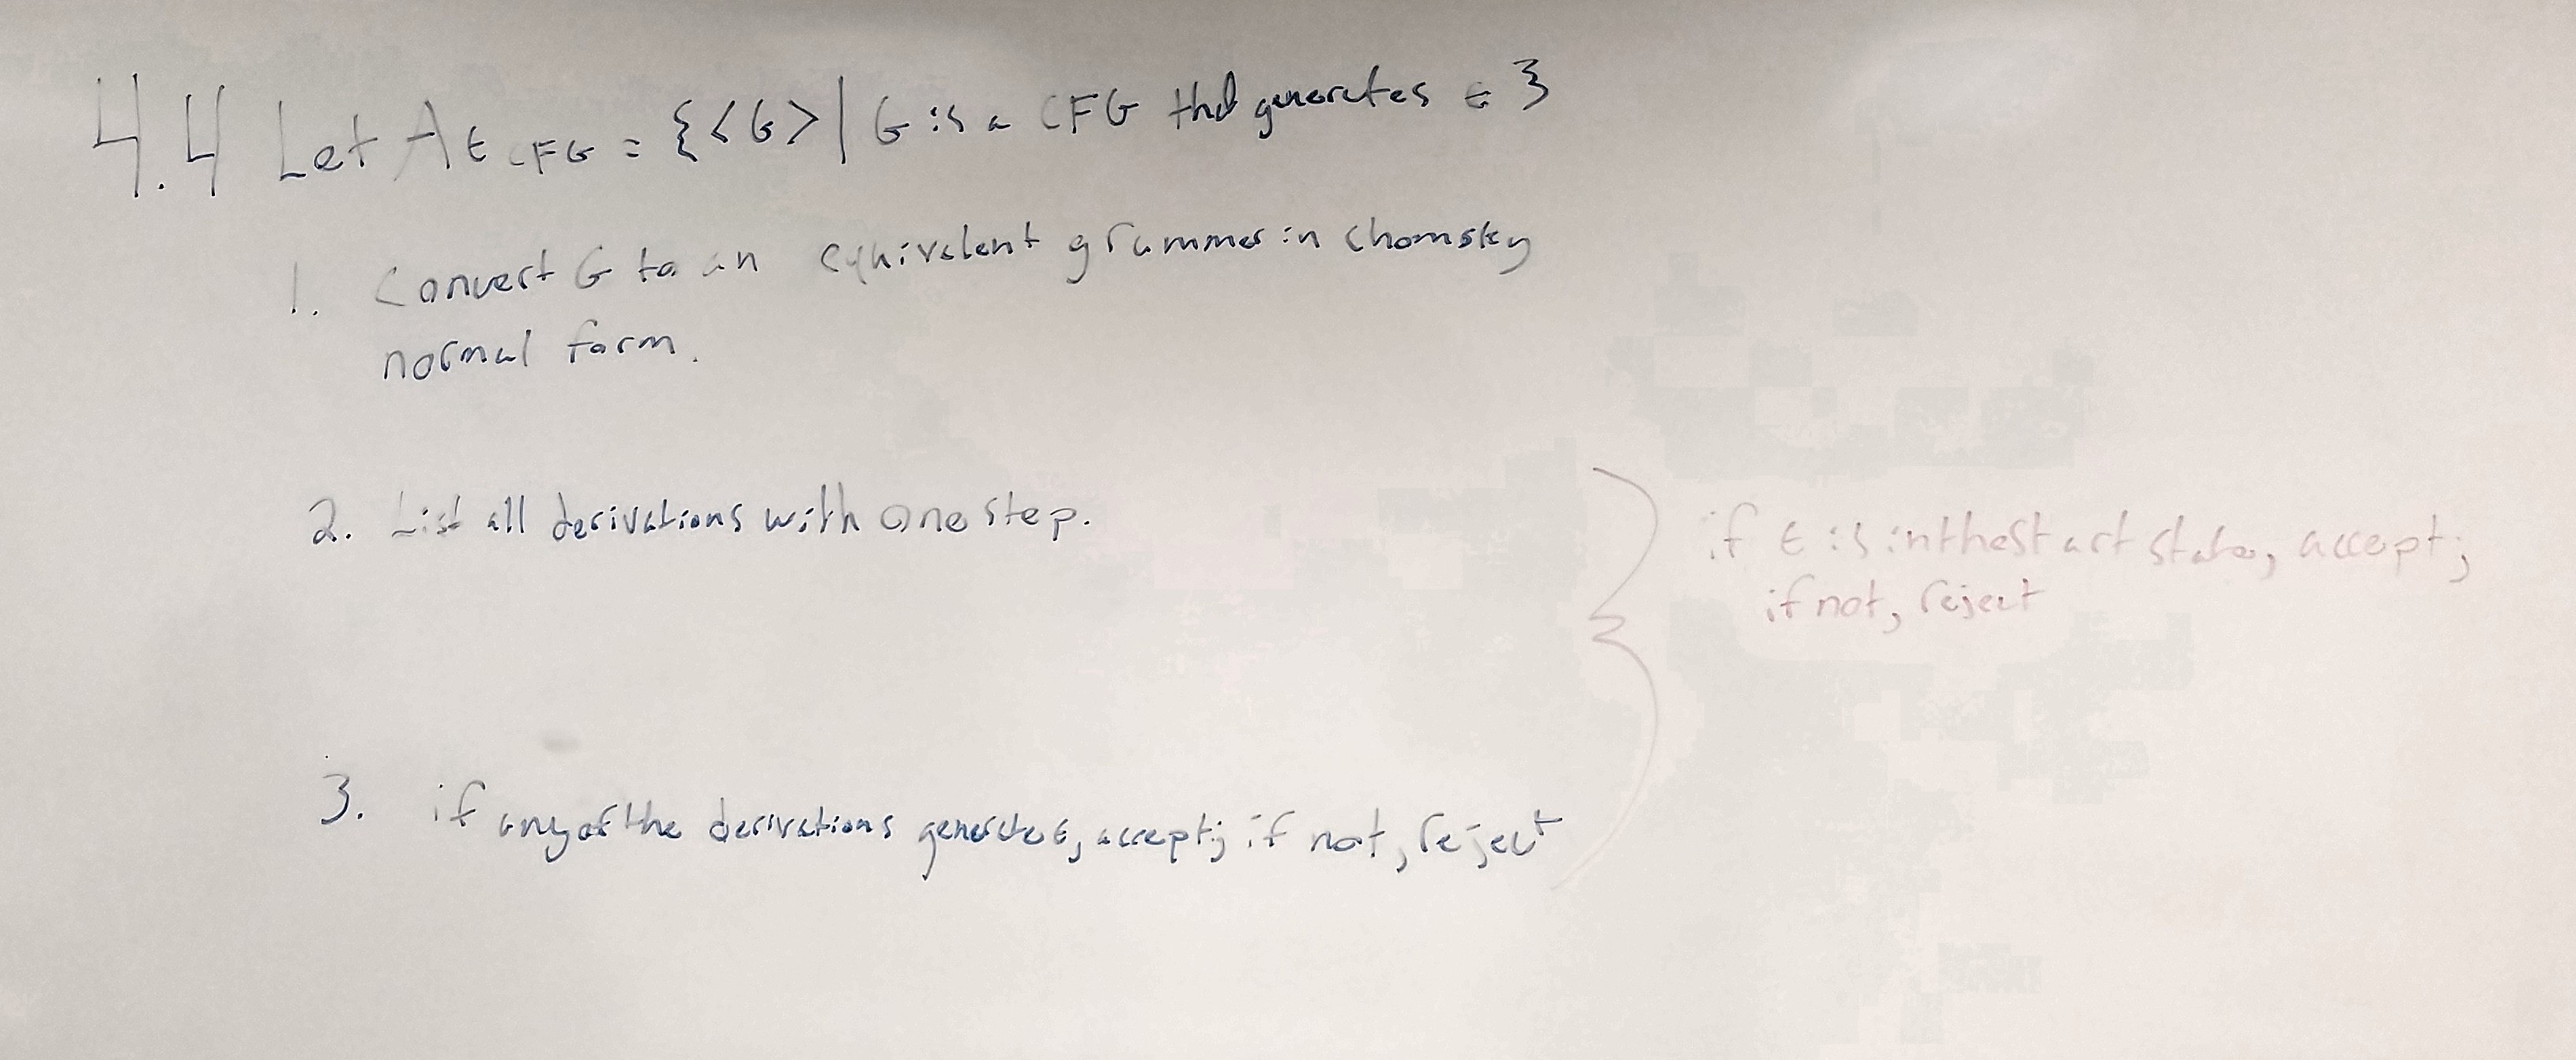 4.4 Let Aε CFG = {<G> | G is a CFG that generates ε }
1. Convert G to an equivalent grammer in chomsky
normal form.
2. List all derivations with one step.
if ε is in the start state, accept;
if not, reject
3. if any of the derivations generate ε, accept; if not, reject